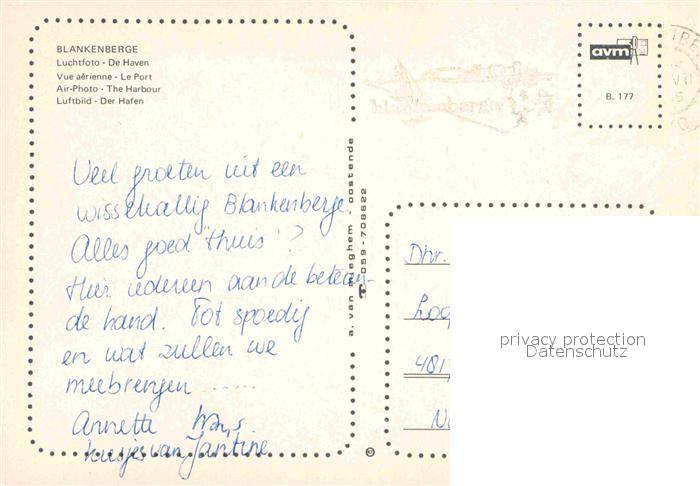 BLANKENBERGE
Luchtfoto - De Haven
Vue aérienne - Le Port
Air-Photo - The Harbour
Luftbild - Der Hafen
avm
B. 177
Veel groeten uit een
wisselvallig Blankenberge.
Alles goed "thuis"?
Hier iedereen aan de beteren-
de hand. Tot spoedig
en wat zullen we
meebrengen ......
Annette
kusjes van Jantine
a. van - oostende
059-708622
Dhr.
481
privacy protection
Datenschutz
©